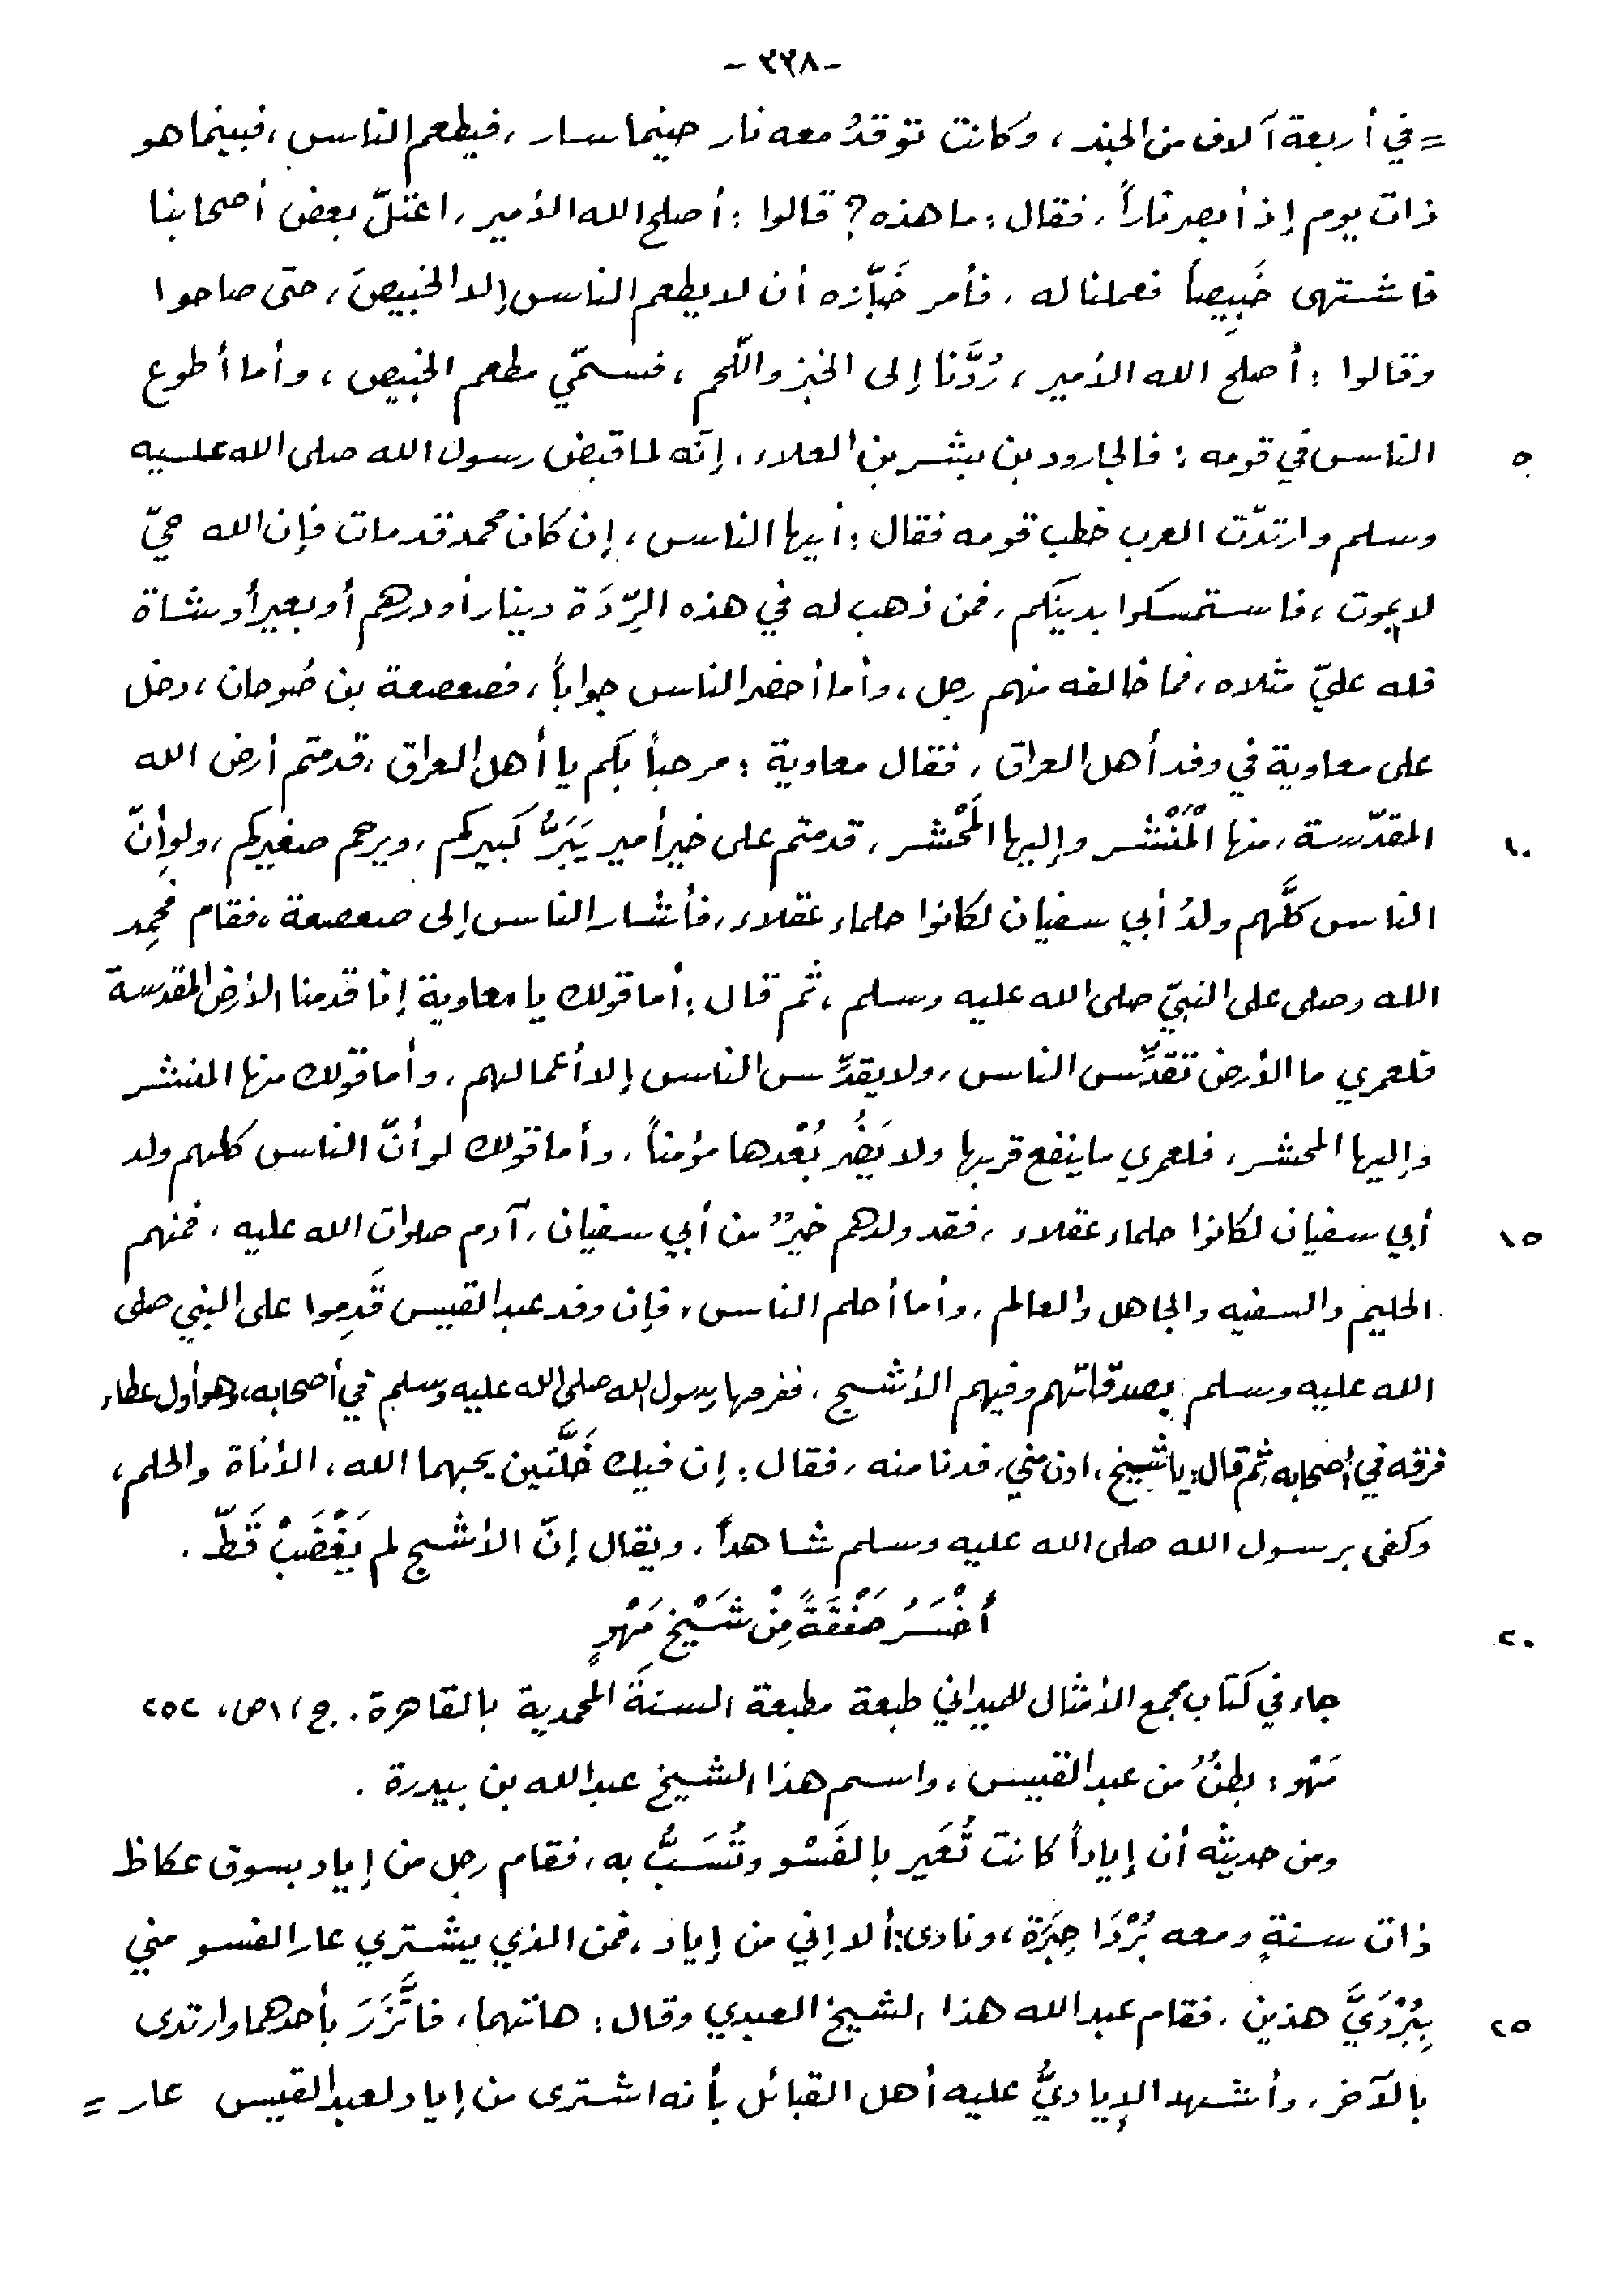 -٣٣٨-
= في أربعة آلاف من الجند ، وكانت توقدُ معه نار حيثما سار ، فيطعم الناس ، فبينما هو
ذات يوم إذ أبصر ناراً ، فقال : ما هذه ؟ قالوا : أصلح الله الأمير ، اعتلّ بعض أصحابنا
فاشتهى خَبِيصاً فعملنا له ، فأمر خَبّازه أن لا يطعم الناس إلا الخبيصَ ، حتى صاحوا
وقالوا : أصلح الله الأمير ، رُدَّنا إلى الخبز واللّحم ، فسمّي مطعم الخبيص ، وأما أطوع
٥ الناس في قومه : فالجارود بن بشر بن العلاء ، إنّه لما قبض رسول الله صلى الله عليه
وسلم وارتدّت العرب خطب قومه فقال : أيها الناس ، إن كان محمد قد مات فإن الله حيّ
لا يموت ، فاستمسكوا بدينكم ، فمن ذهب له في هذه الرِّدَة دينار أو درهم أو بعير أو شاة
فله عليّ مثلاه ، فما خالفه منهم رجل ، وأما أحضر الناس جواباً ، فصعصعة بن صُوحان ، دخل
على معاوية في وفد أهل العراق ، فقال معاوية : مرحباً بكم يا أهل العراق ، قدمتم أرض الله
١٠ المقدّسة ، منها الْمُنْشَر وإليها الْمَحْشر ، قدمتم على خير أمير يَبَرُّ كبيركم ، ويرحم صغيركم ، ولو أنّ
الناس كلَّهم ولدُ أبي سفيان لكانوا حلماء عقلاء ، فأشار الناس إلى صعصعة ، فقام فحمِد
الله وصلى على النبيّ صلى الله عليه وسلم ، ثم قال : أما قولك يا معاوية إنا قدمنا الأرض المقدسة
فلعمري ما الأرض تقدِّس الناس ، ولا يقدِّس الناس إلا أعمالهم ، وأما قولك منها المنشر
وإليها المحشر ، فلعمري ما ينفع قربها ولا يَضُر بُعْدها مؤمناً ، وأما قولك لو أنّ الناس كلهم ولد
١٥ أبي سفيان لكانوا حلماء عقلاء ، فقد ولدهم خيرٌ من أبي سفيان ، آدم صلوات الله عليه ، فمنهم
الحليم والسفيه والجاهل والعالم ، وأما أحلم الناس ، فإن وفد عبد القيس قَدِموا على النبي صلى
الله عليه وسلم بصدقاتهم وفيهم الأشج ، ففرقها رسول الله صلى الله عليه وسلم في أصحابه ، وهو أول عطاء
فرقه في أصحابه ثم قال : يا شيخ ، ادن مني ، فدنا منه ، فقال : إن فيك خَلَّتين يحبهما الله ، الأناة والحلم ،
وكفى برسول الله صلى الله عليه وسلم شاهداً ، ويقال إنّ الأشج لم يَغْضَبْ قَطّ .
٢٠ أَخْسَرُ صَفْقَةً مِنْ شَيْخِ مَهْوٍ
جاء في كتاب مجمع الأمثال للميداني طبعة مطبعة السنة المحمدية بالقاهرة . ج ١، ص، ٢٥٢
مَهْو : بطنٌ من عبد القيس ، واسم هذا الشيخ عبد الله بن بيدرة .
ومن حديثه أن إياداً كانت تُعَير بالفَسْو وتُسَبُّ به ، فقام رجل من إياد بسوق عكاظ
ذات سنةٍ ومعه بُرْدَا حِبَرَة ، ونادى : ألا إني من إياد ، فمن الذي يشتري عار الفسو مني
٢٥ بِبُرْدَيَّ هذين ، فقام عبد الله هذا الشيخ العبدي وقال : هاتهما ، فاتَّزَرَ بأحدهما وارتدى
بالآخر ، وأشهد الإياديُّ عليه أهل القبائل بأنه اشترى من إياد لعبد القيس عار =